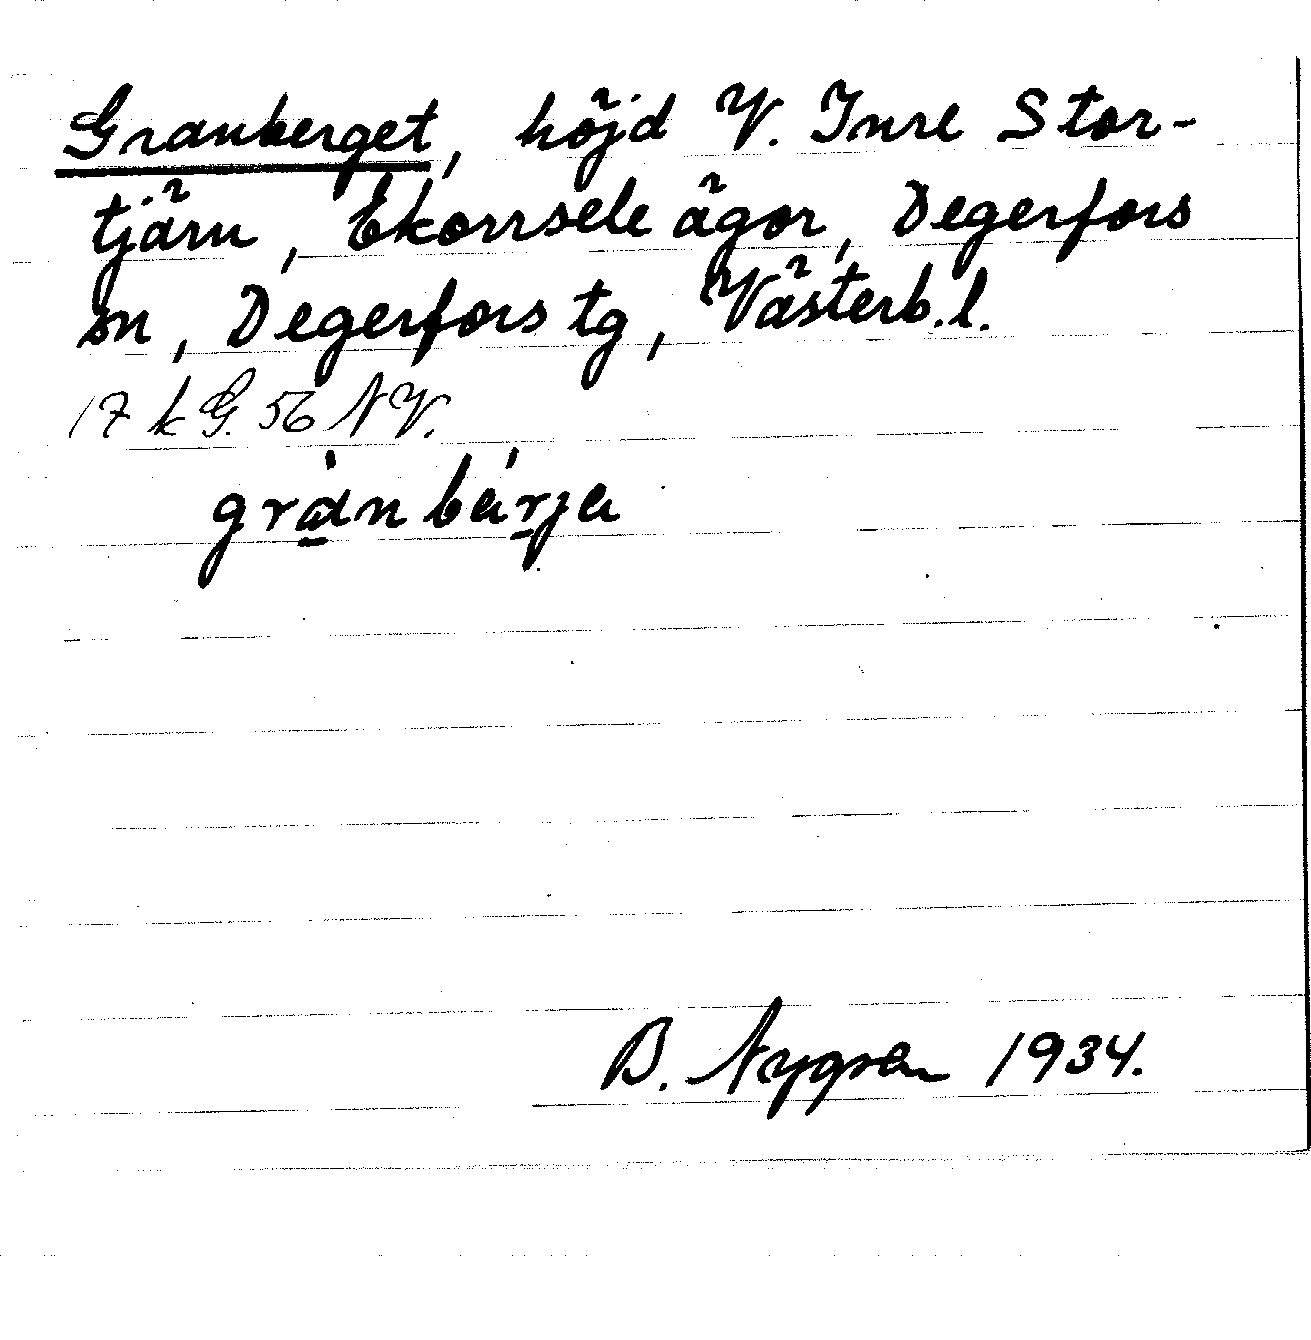 Granberget, höjd V. Inre Stor-
tjärn, Ekorrsele ägor, Degerfors
sn, Degerfors tg, Västerb. l.
17 k G. 56 NV.
grànbárja
B. Nygren 1934.